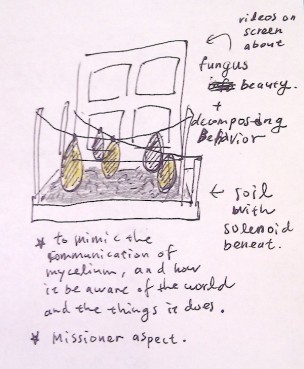 videos on
screen
about
fungus
beauty.
+
decomposing
Behavior
← soil
with
solenoid
beneat.
* to mimic the
communication of
mycelium, and how
it be aware of the world
and the things it does.
* Missioner aspect.